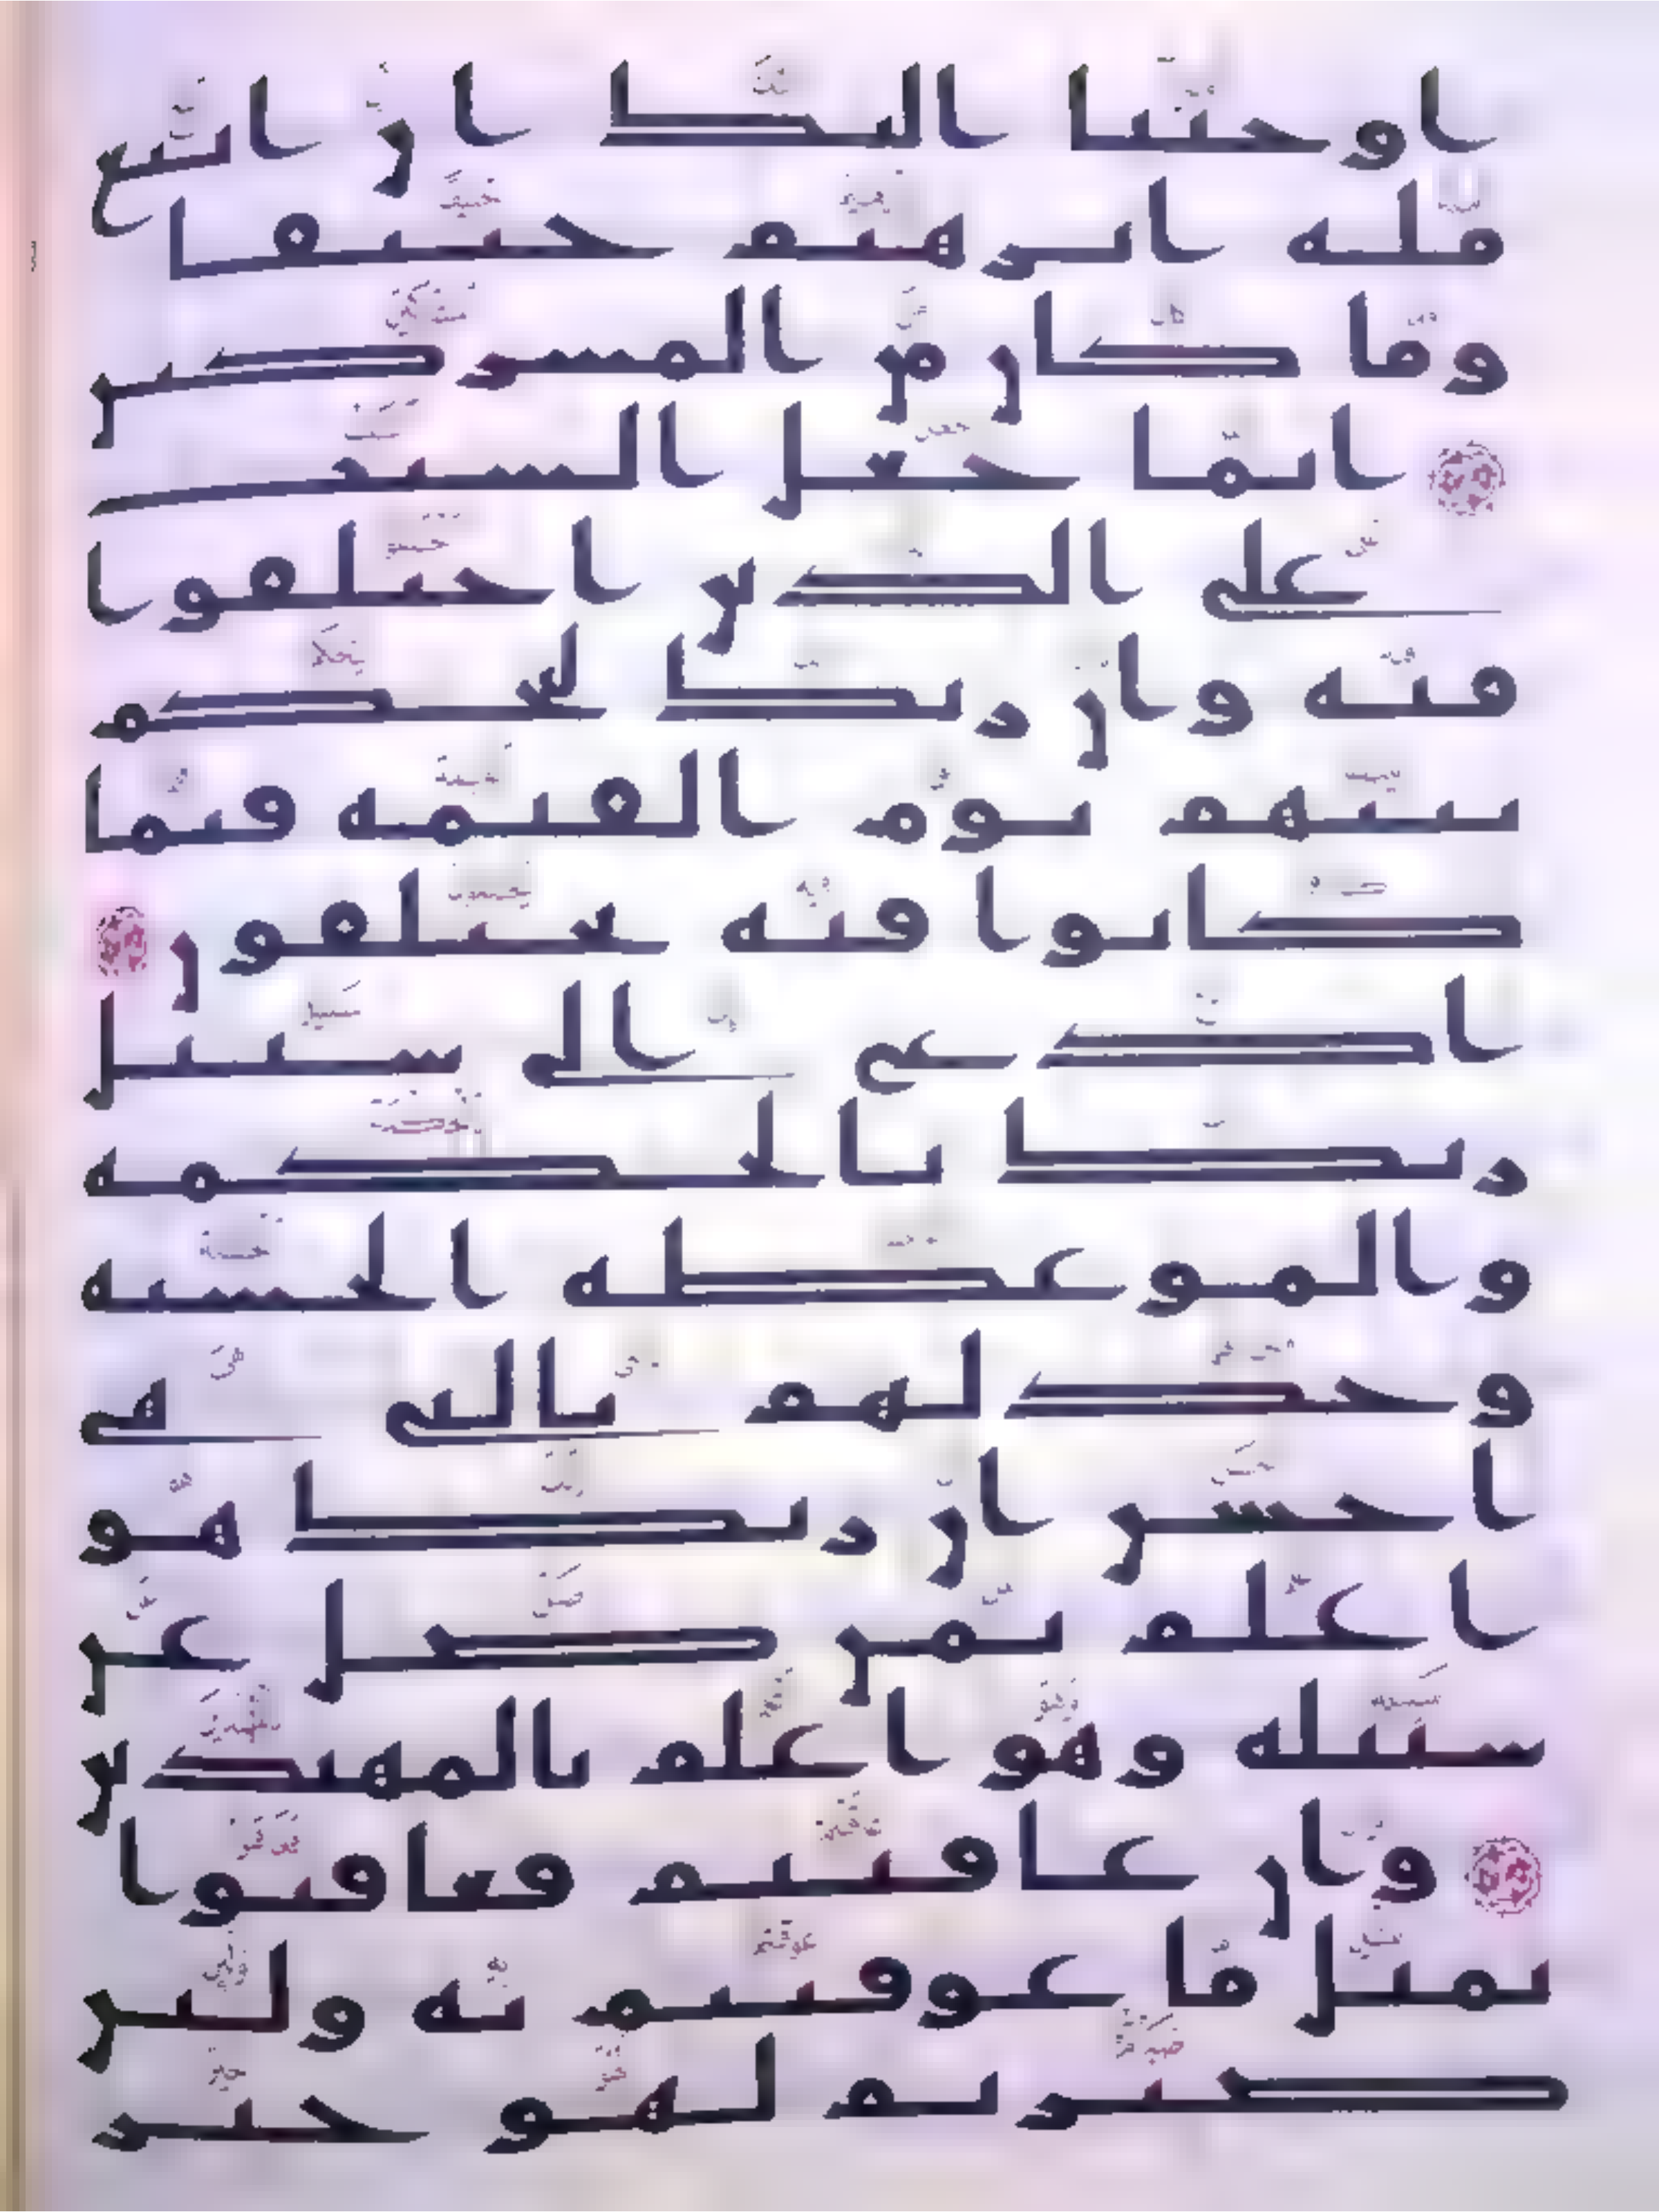 اوحينا اليك ان اتبع
ملة ابرهيم حنيفا
وما كان من المشركين
انما جعل السبت
على الذين اختلفوا
فيه وان ربك ليحكم
بينهم يوم القيمة فيما
كانوا فيه يختلفون
ادع الى سبيل
ربك بالحكمة
والموعظة الحسنة
وجدلهم بالتى هى
احسن ان ربك هو
اعلم بمن ضل عن
سبيله وهو اعلم بالمهتدين
وان عاقبتم فعاقبوا
بمثل ما عوقبتم به ولئن
صبرتم لهو خير